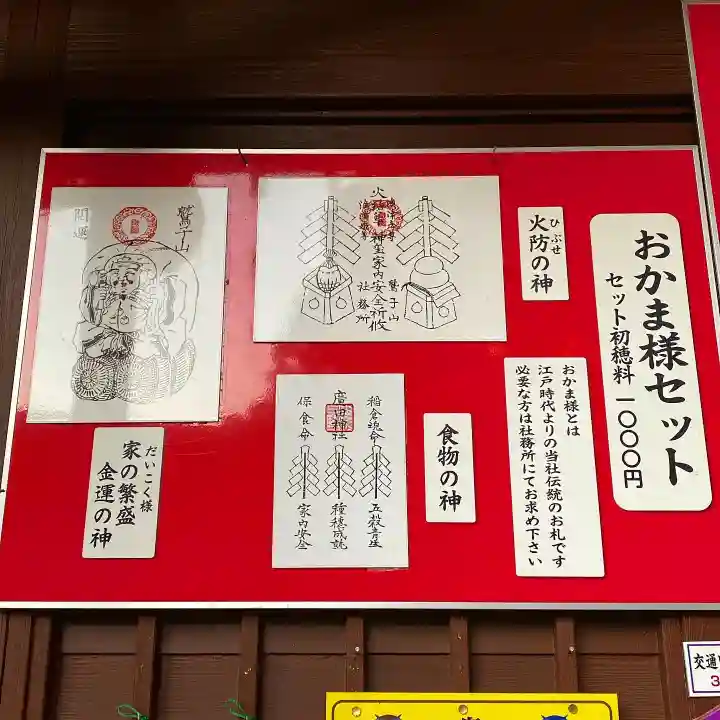 おかま様セット
セット初穂料 一〇〇〇円
ひぶせ
火防の神
おかま様とは
江戸時代よりの当社伝統のお札です
必要な方は社務所にてお求め下さい
鷲子山
社務所
家内安全祈攸
食物の神
稲倉魂命
五穀育生
廣田神社
種穂成就
保食命
家内安全
鷲子山
開運
だいこく様
家の繁盛
金運の神
交通
3